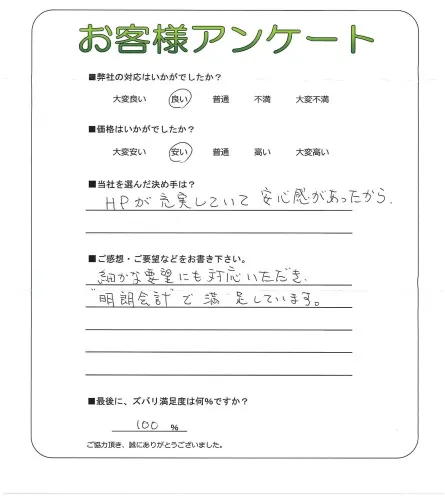 お客様アンケート
■弊社の対応はいかがでしたか?
大変良い 良い 普通 不満 大変不満
■価格はいかがでしたか?
大変安い 安い 普通 高い 大変高い
■当社を選んだ決め手は?
HPが充実していて 安心感があったから.
■ご感想・ご要望などをお書き下さい。
細かな要望にも対応いただき.
"明朗会計"で満足しています。
■最後に、ズバリ満足度は何%ですか?
100 %
ご協力頂き、誠にありがとうございました。